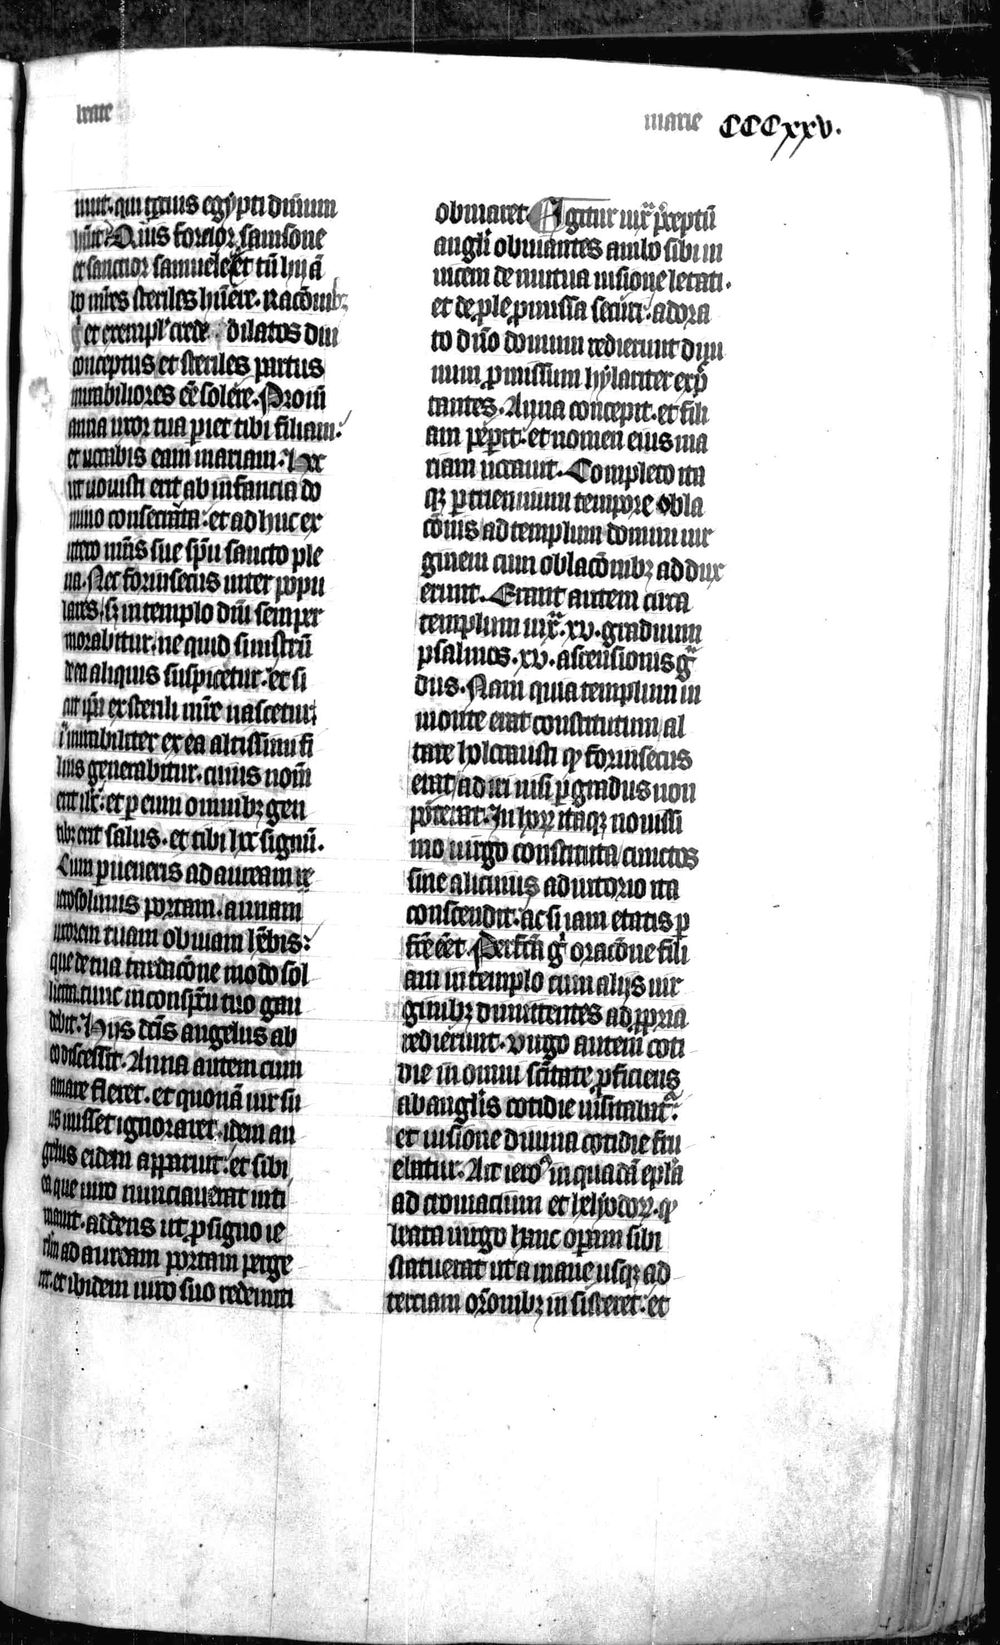 beate marie CCCxxv.
nuit. qui totius egypti dominium
hūit. Quis forcior samsone
et sanctior samuele. et tn̄ hij ā
bo mr̄es steriles hūere. Racōnibꝫ
gͥ et exempl' crede dilatos diu
conceptus et steriles partus
mirabiliores eē solere. Proīn
anna uxor tua pariet tibi filiam.
et uocabis eam mariam. Hec
ut uouisti erit ab infancia do
mino consecrata. et adhuc ex
utero mr̄is sue sp̄u sancto ple
na. Nec forinsecus inter popu
lares. sꝫ in templo dn̄i semper
morabitur. ne quid sinistrū
de ea aliquis suspicetur. et si
cut ip̄a ex sterili mr̄e nascetur
ita mirabiliter ex ea altissimi fi
lius generabitur. cuius nom̄
erit ihc̄. et per eum omnibꝫ gen
tibꝫ erit salus. et tibi hoc signū.
Cum perueneris ad auream ie
rosolimis portam. annam
uxorem tuam obuiam hēbis.
que de tua tardacōne modo sol
licita. tunc in conspectu tuo gau
debit. Hijs dc̄is angelus ab
eo discessit. Anna autem cum
amare fleret. et quonā uir su
us iuisset ignoraret. idem an
gelus eidem apparuit. et sibi
ea que uiro nunciauerat inti
mauit. addens ut pro signo ie
rlm̄ ad auream portam perge
ret. et ibidem uiro suo redeunti
obuiaret. Igitur iux̄ preceptū
angli obuiantes ambo sibi in
uicem de mutua uisione letati.
et de prole promissa securi. adora
to dn̄o domum redierunt diui
num promissum hylariter exp̄c
tantes. Anna concepit. et fili
am peperit. et nomen eius ma
riam uocauit. Completo ita
qꝫ per triennium tempore abla
cōnis ad templum domini uir
ginem cum oblacōnibꝫ addux
erunt. Erant autem circa
templum iux̄. xv. graduum
psalmos. xv. ascensionis gͣ
dus. Nam quia templum in
monte erat constitutum al
tare holocausti qd forinsecus
erat adiri nisi per gradus non
poterat. In horꝝ itaqꝫ nouissi
mo uirgo constituta cunctos
sine alicuius adiutorio ita
conscendit. ac si iam etatis per
fc̄e eēt. Perfc̄a gͦ oracōne fili
am in templo cum alijs uir
ginibꝫ dimittentes ad propria
redierunt. Virgo autem coti
die in omni sc̄itate proficiens
ab anglis cotidie uisitabatͬ.
et uisione diuina cotidie fru
ebatur. Ait ieroͦ in quadā epl̄a
ad cromacium et helyodorꝝ. qd
beata uirgo hanc operam sibi
statuerat ut a mane usqꝫ ad
terciam orōnibꝫ insisteret. et